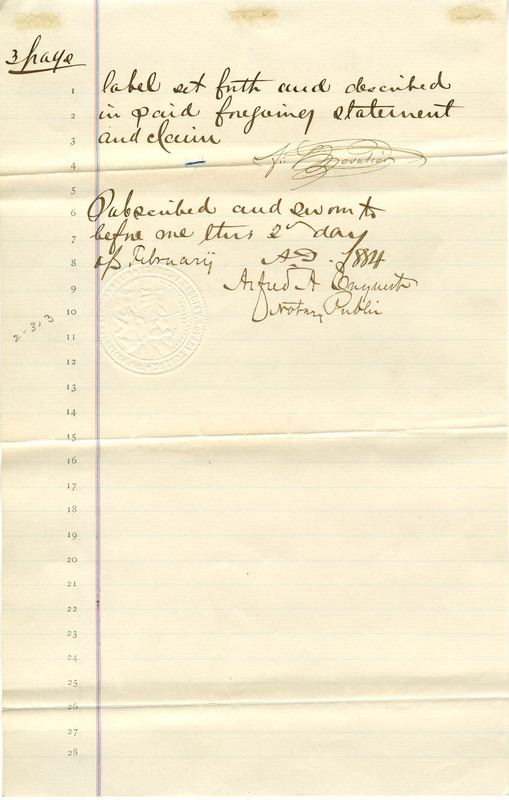 3 page
1 label set forth and described
2 in said foregoing statement
3 and claim
4
5
6 Subscribed and sworn to
7 before me this 2nd day
8 of February A.D. 1884
9 Alfred A Enquist
10 Notary Public
2-3,3
11
12
13
14
15
16
17
18
19
20
21
22
23
24
25
26
27
28